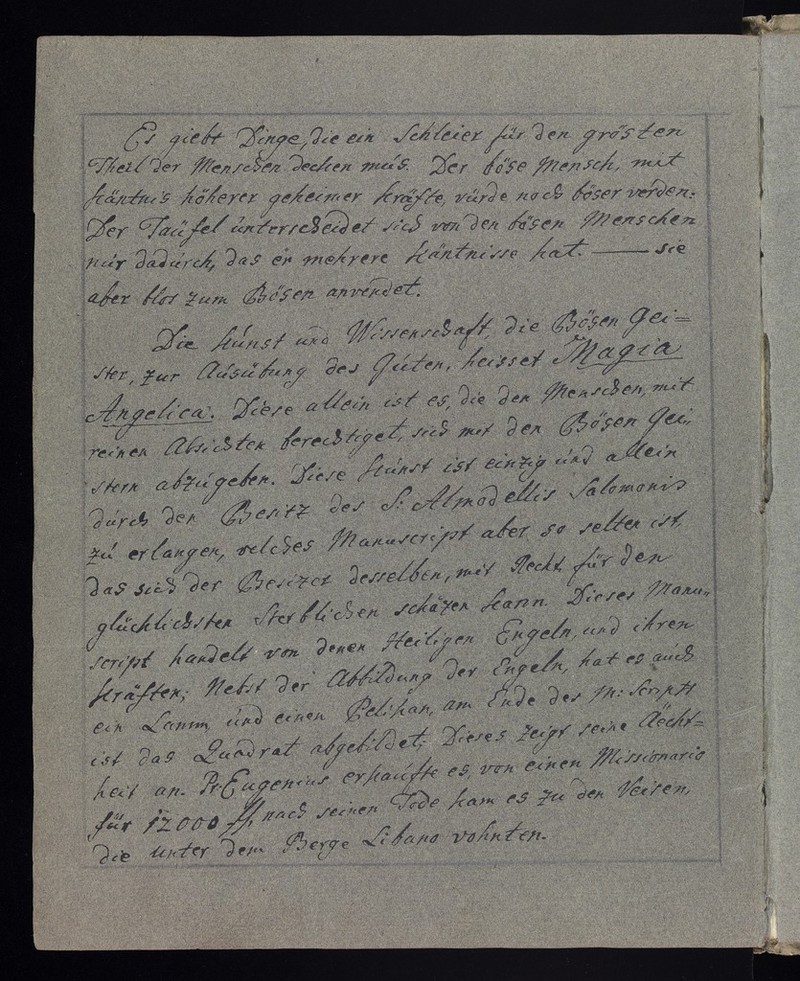 Es giebt Dinge, die ein Schleier für den grösten
Theil der Menschen decken mús. Der böse Mensch, mit
Käntnis höherer geheimer Kräfte, vürde noch böser verden:
Der Taüfel únterscheidet sich von den bösen Menschen
núr dadúrch, das er mehrere Käntnisse hat. — sie
aber blos zum Bösen anvendet.
Die Kúnst und Wissenschaft, die Bösen Gei=
ster, zur Aúsübung des Gúten, heisset Magia
Angelica. Diese allein ist es, die den Menschen, mit
reinen Absichten berechtiget, sich mit den Bösen Gei,,
stern abzúgeben. Diese Kúnst ist einzig únd allein
dúrch den Besitz des S: Almodellis Salomonis
zú erlangen, velches Manuscript aber so selten ist,
das sich der Besizer desselben, mit Recht für den
glücklichsten Sterblichen schäzen kann. Dieses Manu,,
script handelt von denen Heiligen Engeln, und ihren
Kräften; Nebst der Abbildung der Engeln, hat es aúch
ein Lamm únd einen Pelikan, am Ende des M: Scripts
ist das Quadrat abgebildet; Dieses zeigt seine Aëcht=
heit an. Pr: Eugenius erkaúfte es, von einen Missionario
für 12000 ff, nach seinen Tode kam es zu den Veisen,
die unter dem Berge Libano vohnten.